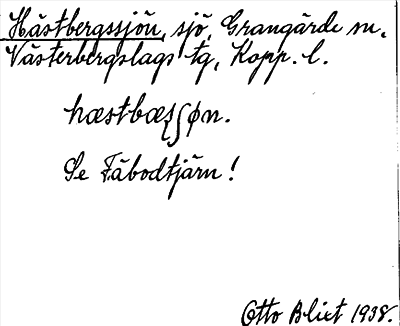 Hästbergssjön, sjö, Grangärde sn,
Västerbergslags tg, Kopp. l.
hæstbæʃʃøn.
Se Fäbodtjärn!
Otto Blixt 1938.